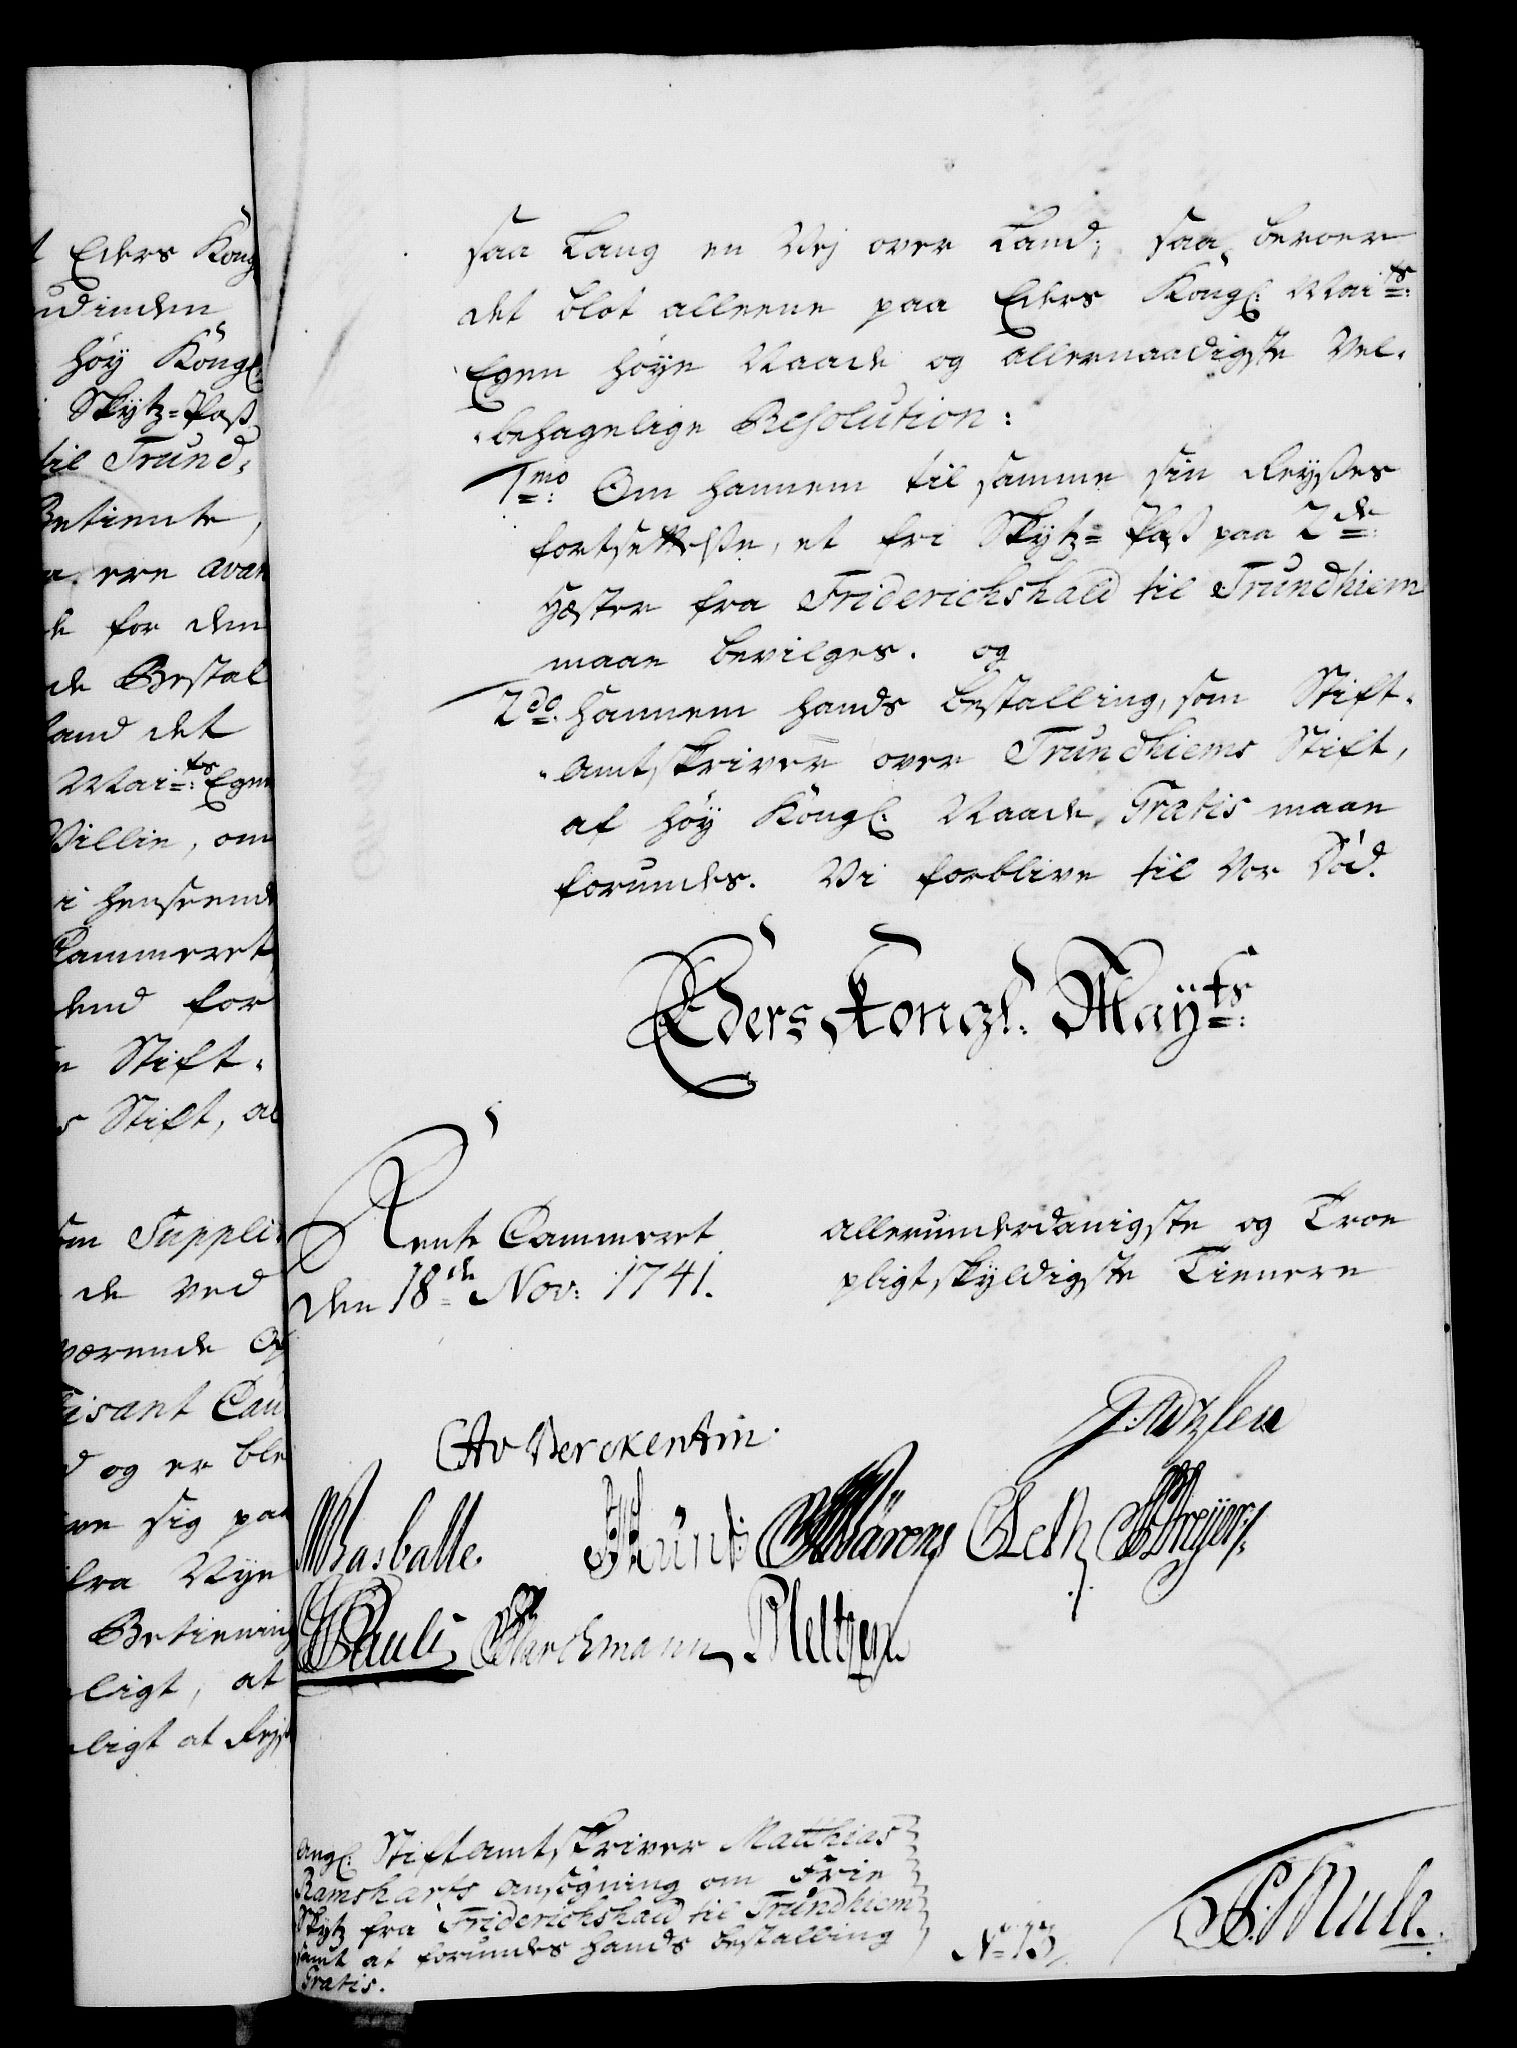 t Eders Kong
udinden
höy Kongl:
Skytz-Pass
til Trund-
Betiente,
ere avan
de for den
de Bestal
land det
Mai:ts Egen
Villie, om
i henseende
Cammeret
dend for
Stift-
s Stift, al
om Suppli-
de ved
værende
Cau
d og er ble
ve sig paa
fra Nye
Betiening
ligt, at
ligt at Rejs
saa Lang en Vej over Land; saa beroer
det blot alleene paa Eders Kongl: Mai:ts
Egen höye Naade og allernaadigste Vel-
behagelige Resolution:
1mo: Om hannem til samme sin Reyses
fortsettelse, et fri Skytz-Pass paa 2de:
Hæster fra Friderichshald til Trundhiem
maae bevilges. og
2do: hannem hands bestalling, som Stift-
amtskriver over Trundhiems Stift,
af höy Kongl: Naade, Gratis maae
forundes. Vi forblive til vor Död.
Eders Kongl. Mayts:
Rente Cammeret
den 18de Nov: 1741.
allerunderdanigste og Troe
pligtskyldigste Tienere
CAv Berckentin.
Basballe.
Pauli
Meltzen
Angl: Stiftamtskriver Matthias
Ramsharts ansögning om Frie
Skytz fra Friderichshald til Trundhiem
samt at forundes hands bestalling
Gratis.
No 13/
Mule.